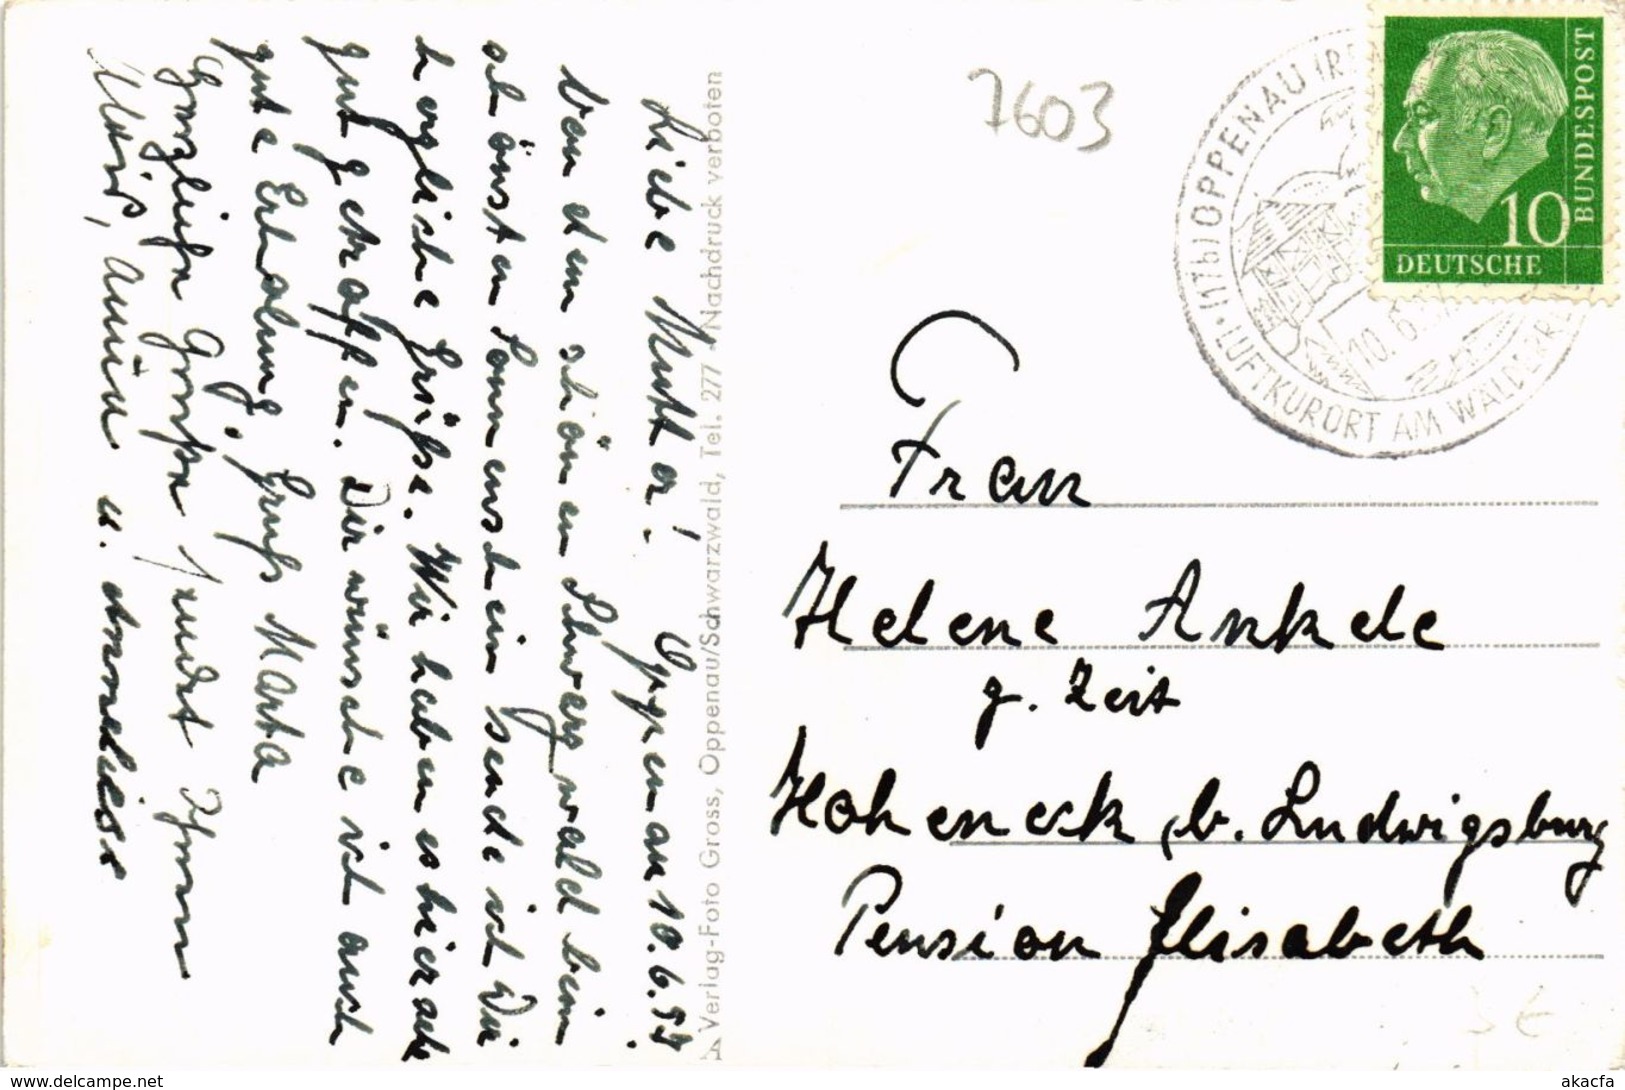 Liebe Mutter! Oppenau 10.6.57
Von dem schönen Schwarzwald beim
schönsten Sonnenschein sende ich Dir
herzliche Grüße. Wir haben es hier auch
gut getroffen. Dir wünsche ich auch
gute Erholung, Gruß Marta
Herzliche Grüße sendet Ihnen
u. Anneliese
A Verlag-Foto Gross, Oppenau/Schwarzwald, Tel. 277 - Nachdruck verboten
7603
(17b) OPPENAU
10.6.57
LUFTKURORT AM
10
BUNDESPOST
DEUTSCHE
Frau
Helene Ankele
z. Zeit
Hoheneck b. Ludwigsburg
Pension Elisabeth
3 €
www.delcampe.net
akacfa